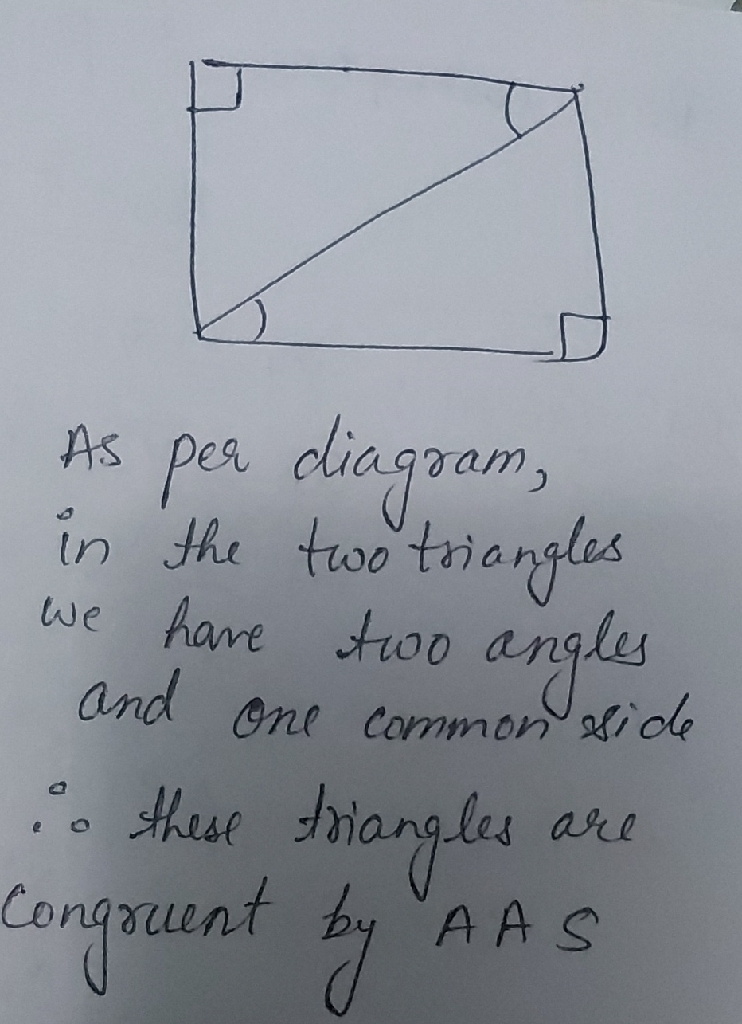 As per diagram,
in the two triangles
we have two angles
and one common side
∴ these triangles are
congruent by AAS